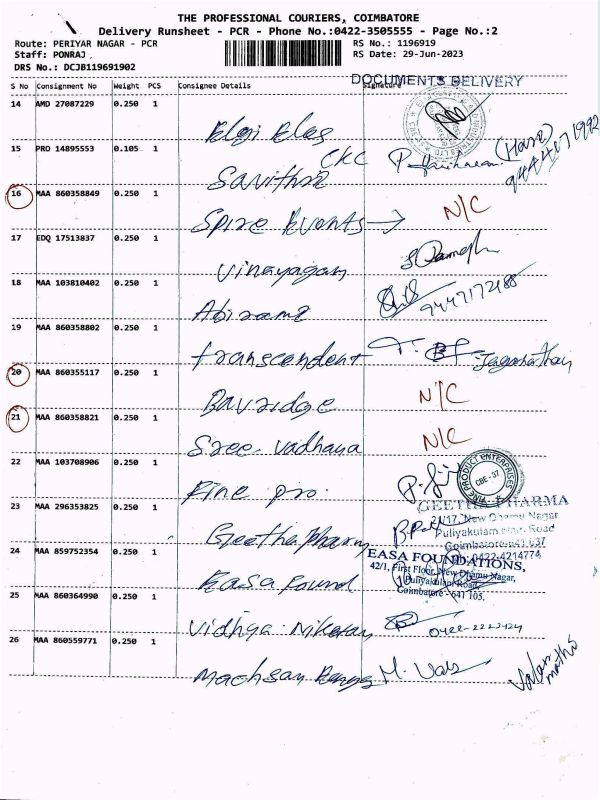 THE PROFESSIONAL COURIERS, COIMBATORE
Delivery Runsheet - PCR - Phone No.:0422-3505555 - Page No.:2
Route: PERIYAR NAGAR - PCR RS No.: 1196919
Staff: PONRAJ RS Date: 29-Jun-2023
DRS No.: DCJB119691902
DOCUMENTS DELIVERY
S No Consignment No Weight PCS Consignee Details Signature
14 AMD 27087229 0.250 1
Elgi Elec
15 PRO 14895553 0.105 1
CKC
Savithri
16 MAA 860358849 0.250 1
Spire Events → N/C
17 EDQ 17513837 0.250 1
Vinayagan
18 MAA 103810402 0.250 1
Abirami
19 MAA 860358802 0.250 1
transcendent
Jaganathan
20 MAA 860355117 0.250 1
Bavridge N/C
21 MAA 860358821 0.250 1
Sree vadhana N/C
22 MAA 103708906 0.250 1
Fine pro.
FINE PRODUCT ENTERPRISES
CBE-37
23 MAA 296353825 0.250 1
GEETHA PHARMA
21/17, New Dhamu Nagar
Puliyakulam Road
Coimbatore-641 037
0422-4214774
Geetha Pharm
24 MAA 859752354 0.250 1
EASA FOUNDATIONS,
42/1, First Floor, New Dhamu Nagar,
Puliyakulam Road
Coimbatore - 641 105.
Easa Found
25 MAA 860364990 0.250 1
Vidhya Niketan
26 MAA 860559771 0.250 1